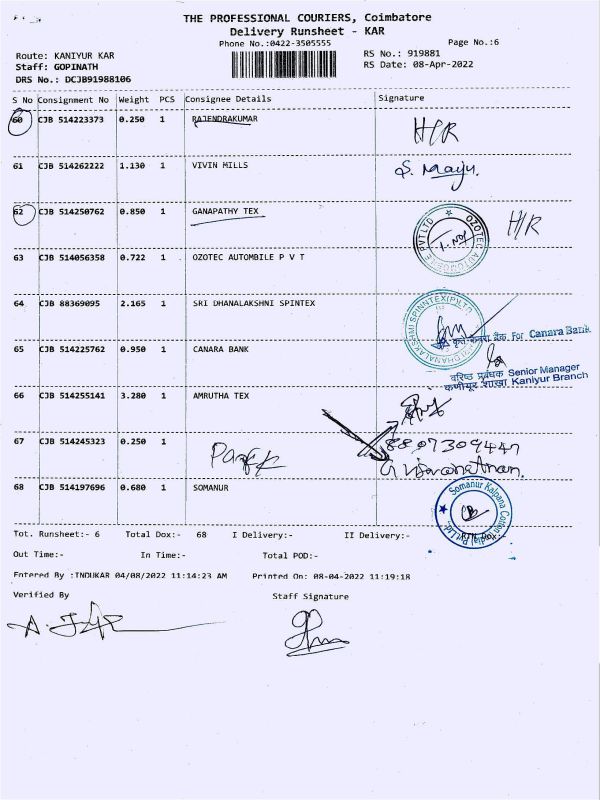 THE PROFESSIONAL COURIERS, Coimbatore
Delivery Runsheet - KAR
Phone No.:0422-3505555
Page No.:6
Route: KANIYUR KAR
RS No.: 919881
Staff: GOPINATH
RS Date: 08-Apr-2022
DRS No.: DCJB91988106
S No Consignment No Weight PCS Consignee Details Signature
60 CJB 514223373 0.250 1 RAJENDRAKUMAR H/R
61 CJB 514262222 1.130 1 VIVIN MILLS
62 CJB 514250762 0.850 1 GANAPATHY TEX H/R
OZOTEC AUTOMOBILE PVT LTD
63 CJB 514056358 0.722 1 OZOTEC AUTOMBILE P V T
64 CJB 88369095 2.165 1 SRI DHANALAKSHNI SPINTEX
For Canara Bank
65 CJB 514225762 0.950 1 CANARA BANK
वरिष्ठ प्रबंधक Senior Manager
कणीयूर शाखा Kaniyur Branch
66 CJB 514255141 3.280 1 AMRUTHA TEX
67 CJB 514245323 0.250 1
68 CJB 514197696 0.680 1 SOMANUR
Somanur Kalpana Cotton
Tot. Runsheet:- 6 Total Dox:- 68 I Delivery:- II Delivery:-
Out Time:- In Time:- Total POD:-
Entered By :INDUKAR 04/08/2022 11:14:23 AM Printed On: 08-04-2022 11:19:18
Verified By Staff Signature